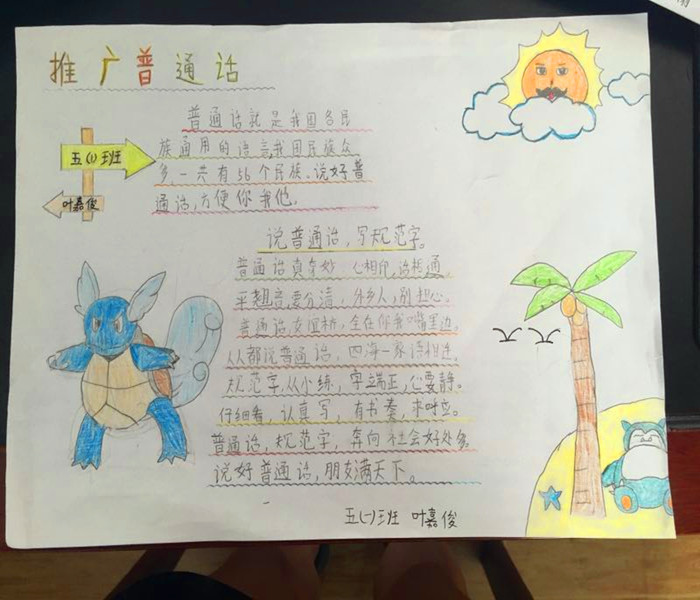 推广普通话
普通话就是我国各民
族通用的语言,我国民族众
多,一共有56个民族。说好普
通话,方便你我他。
五(1)班
叶嘉俊
说普通话,写规范字。
普通话真奇妙 心相印,话相通
平翘音,要分清,外乡人,别担心。
普通话,友谊桥,全在你我嘴里边。
人人都说普通话,四海一家语相连。
规范字,从小练,字端正,心要静。
仔细看,认真写,有书奏,来呼应。
普通话,规范字,奔向社会好处多
说好普通话,朋友满天下。
五(一)班 叶嘉俊